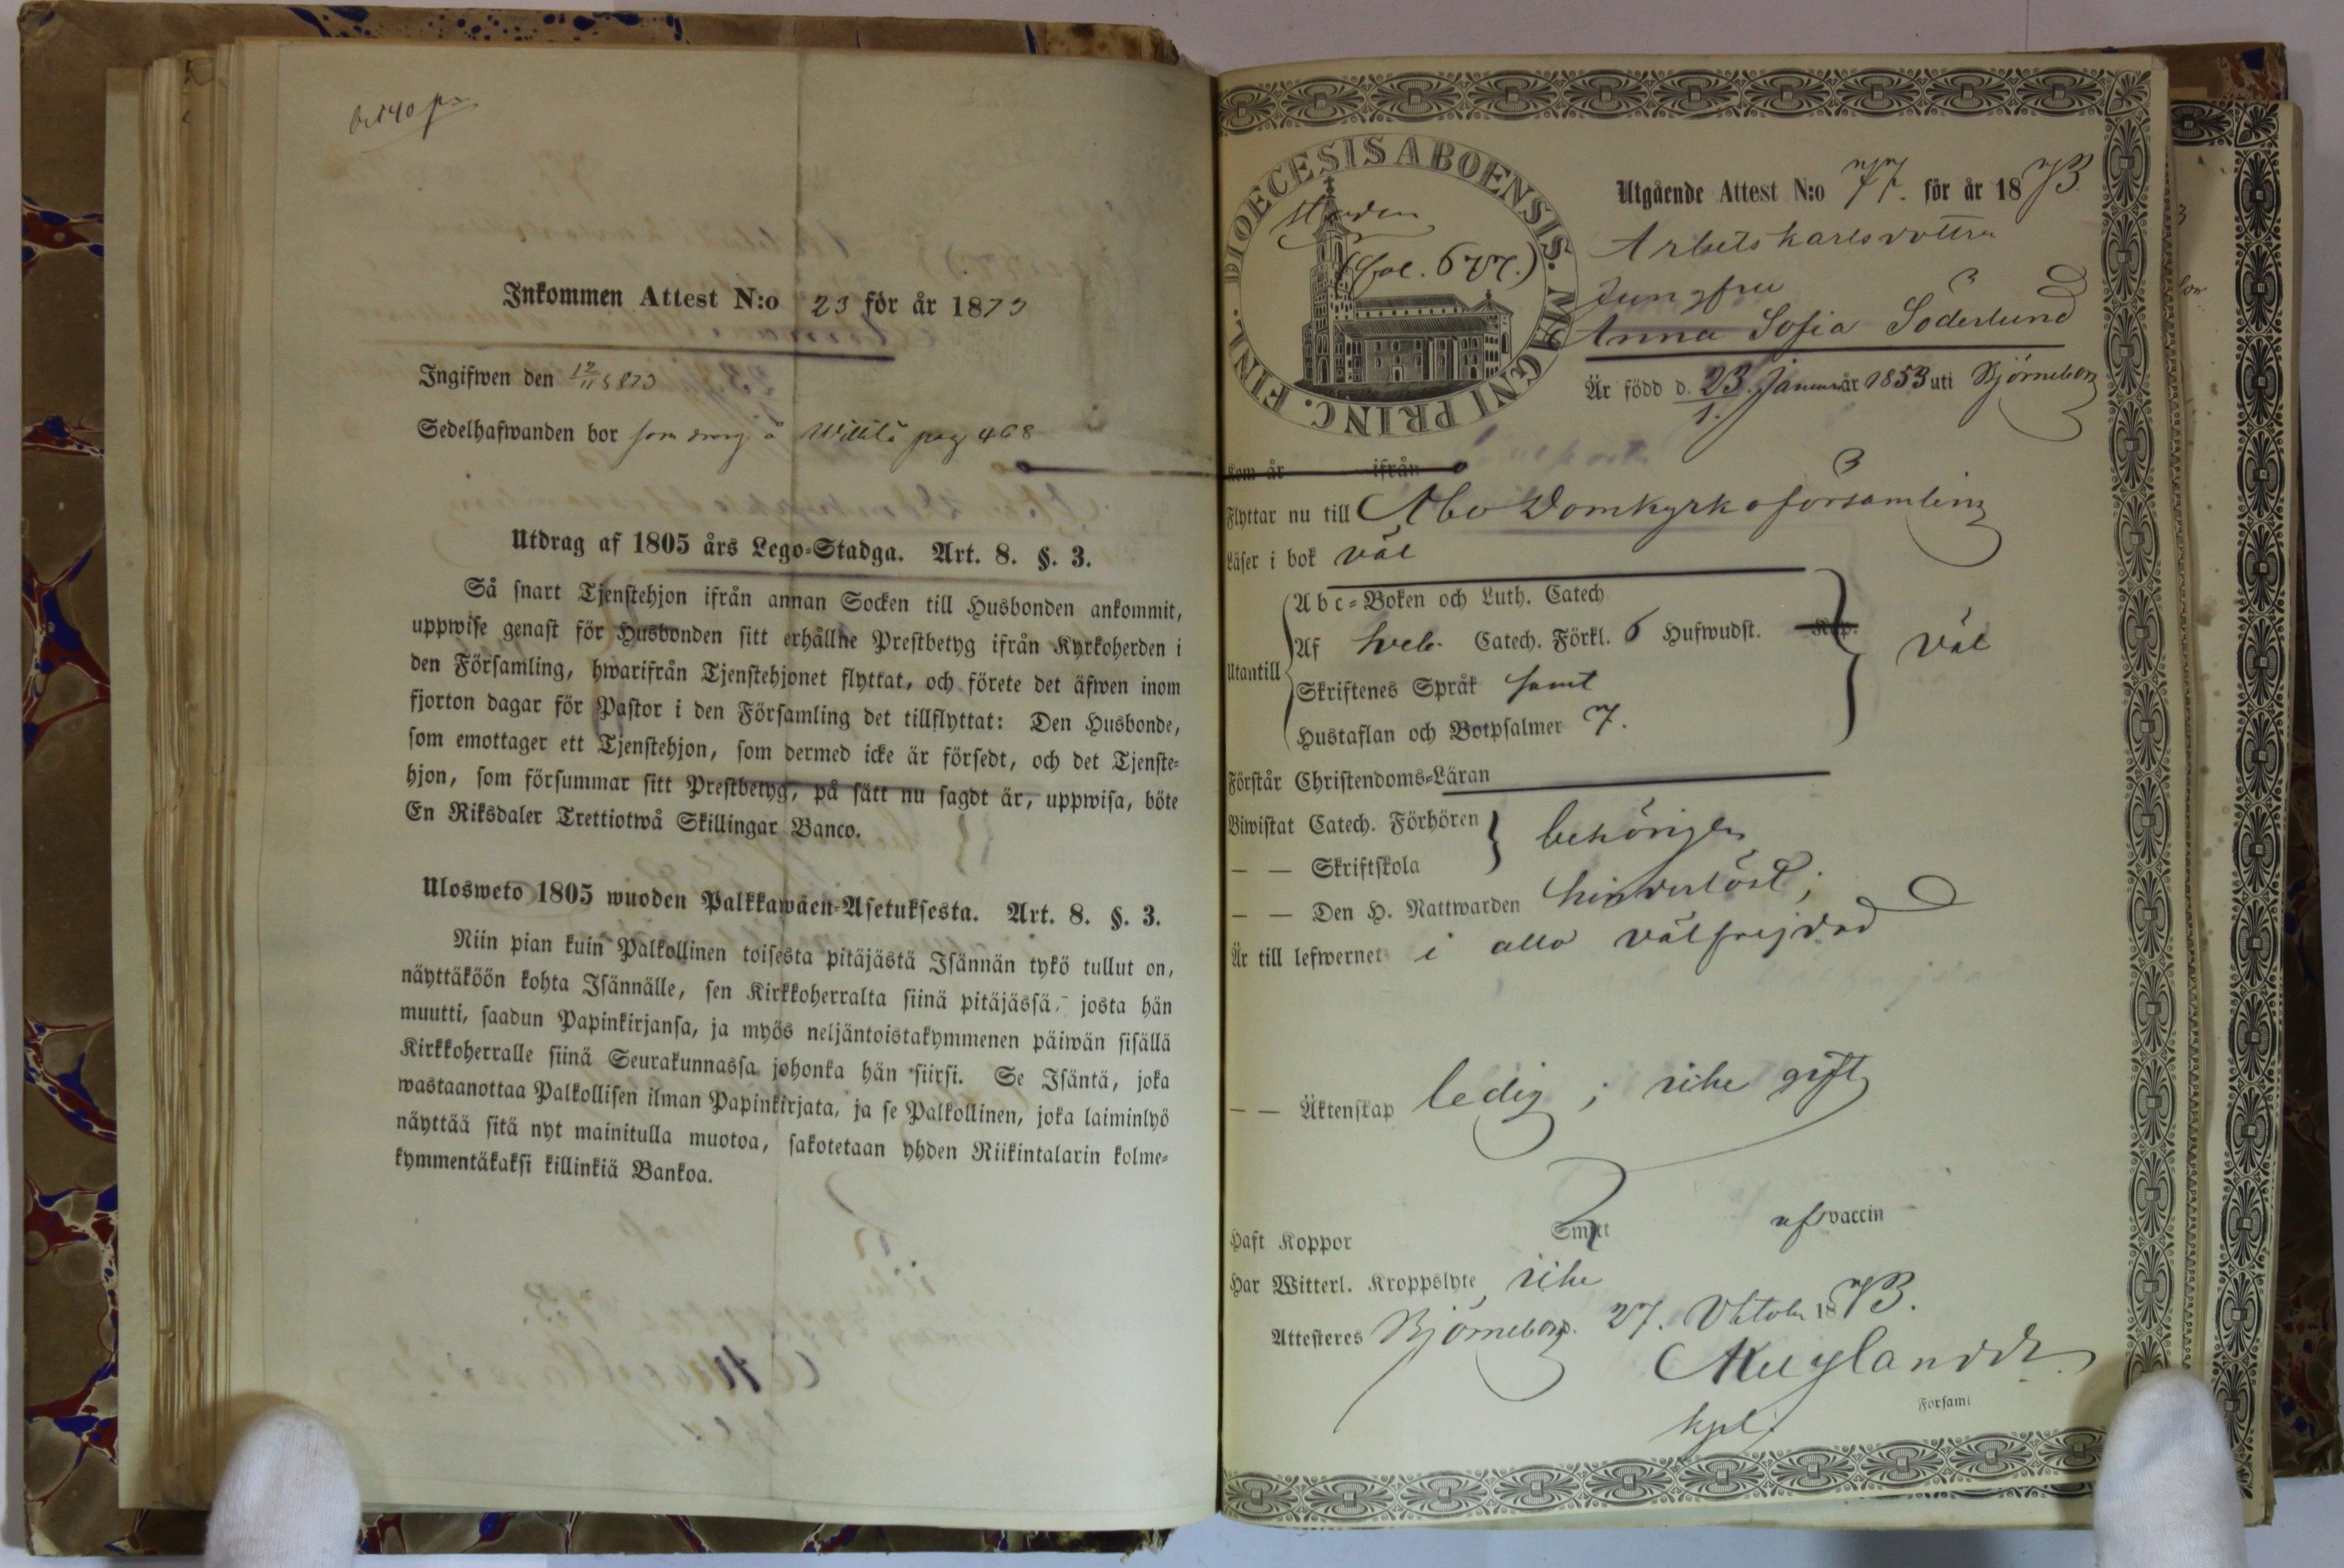 Inkommen Attest N:o 23 för år 1873
Ingifwen den 12/11 1873
Sedelhafwanden bor som å Willilä pag 468
Utdrag af 1805 års Lego-Stadga. Art. 8. §. 3.
Så snart Tjenstehjon ifrån annan Socken till Husbonden ankommit,
uppwise genast för Husbonden sitt erhållne Prestbetyg ifrån Kyrkoherden i
den Församling, hwarifrån Tjenstehjonet flyttat, och förete det äfwen inom
fjorton dagar för Pastor i den Församling det tillflyttat: Den Husbonde,
som emottager ett Tjenstehjon, som dermed icke är försedt, och det Tjenste-
hjon, som försummar sitt Prestbetyg, på sätt nu sagdt är, uppwisa, böte
En Riksdaler Trettiotwå Skillingar Banco.
Ulosweto 1805 wuoden Palkkawäen-Asetuksesta. Art. 8. §. 3.
Niin pian kuin Palkollinen toisesta pitäjästä Isännän tykö tullut on,
näyttäköön kohta Isännälle, sen Kirkkoherralta siinä pitäjässä, josta hän
muutti, saadun Papinkirjansa, ja myös neljäntoistakymmenen päiwän sisällä
Kirkkoherralle siinä Seurakunnassa johonka hän siirsi. Se Isäntä, joka
wastaanottaa Palkollisen ilman Papinkirjata, ja se Palkollinen, joka laiminlyö
näyttää sitä nyt mainitulla muotoa, sakotetaan yhden Riikintalarin kolme-
kymmentäkaksi killinkiä Bankoa.
DIOECESIS ABOENSIS. MAGNI PRINC. FINL.
(Fol. 677.)
Utgående Attest N:o 77. för år 1873.
Arbetskarlsdottren
Jungfru
Anna Sofia Söderlund
Är född d. 23. Januar år 1853 uti Björneborg
1.
Kom år ifrån
Flyttar nu till Åbo Domkyrkoförsamling
Läser i bok väl
Abc-Boken och Luth. Catech.
Af Sveb. Catech. Förkl. 6 Hufwudst. Kap. väl
Utantill
Skriftenes Språk samt
Hustaflan och Botpsalmer 7.
Förstår Christendoms-Läran
Biwistat Catech. Förhören behörigen
— — Skriftskola
— — Den H. Nattwarden hinderlöst;
Är till lefwernet i allo välfrejdad
— — Äktenskap ledig; icke gift
Haft Koppor Smitt af vaccin
Har Witterl. Kroppslyte icke
Attesteres Björneborg. 27. Oktob. 1873.
kpl.
Församl